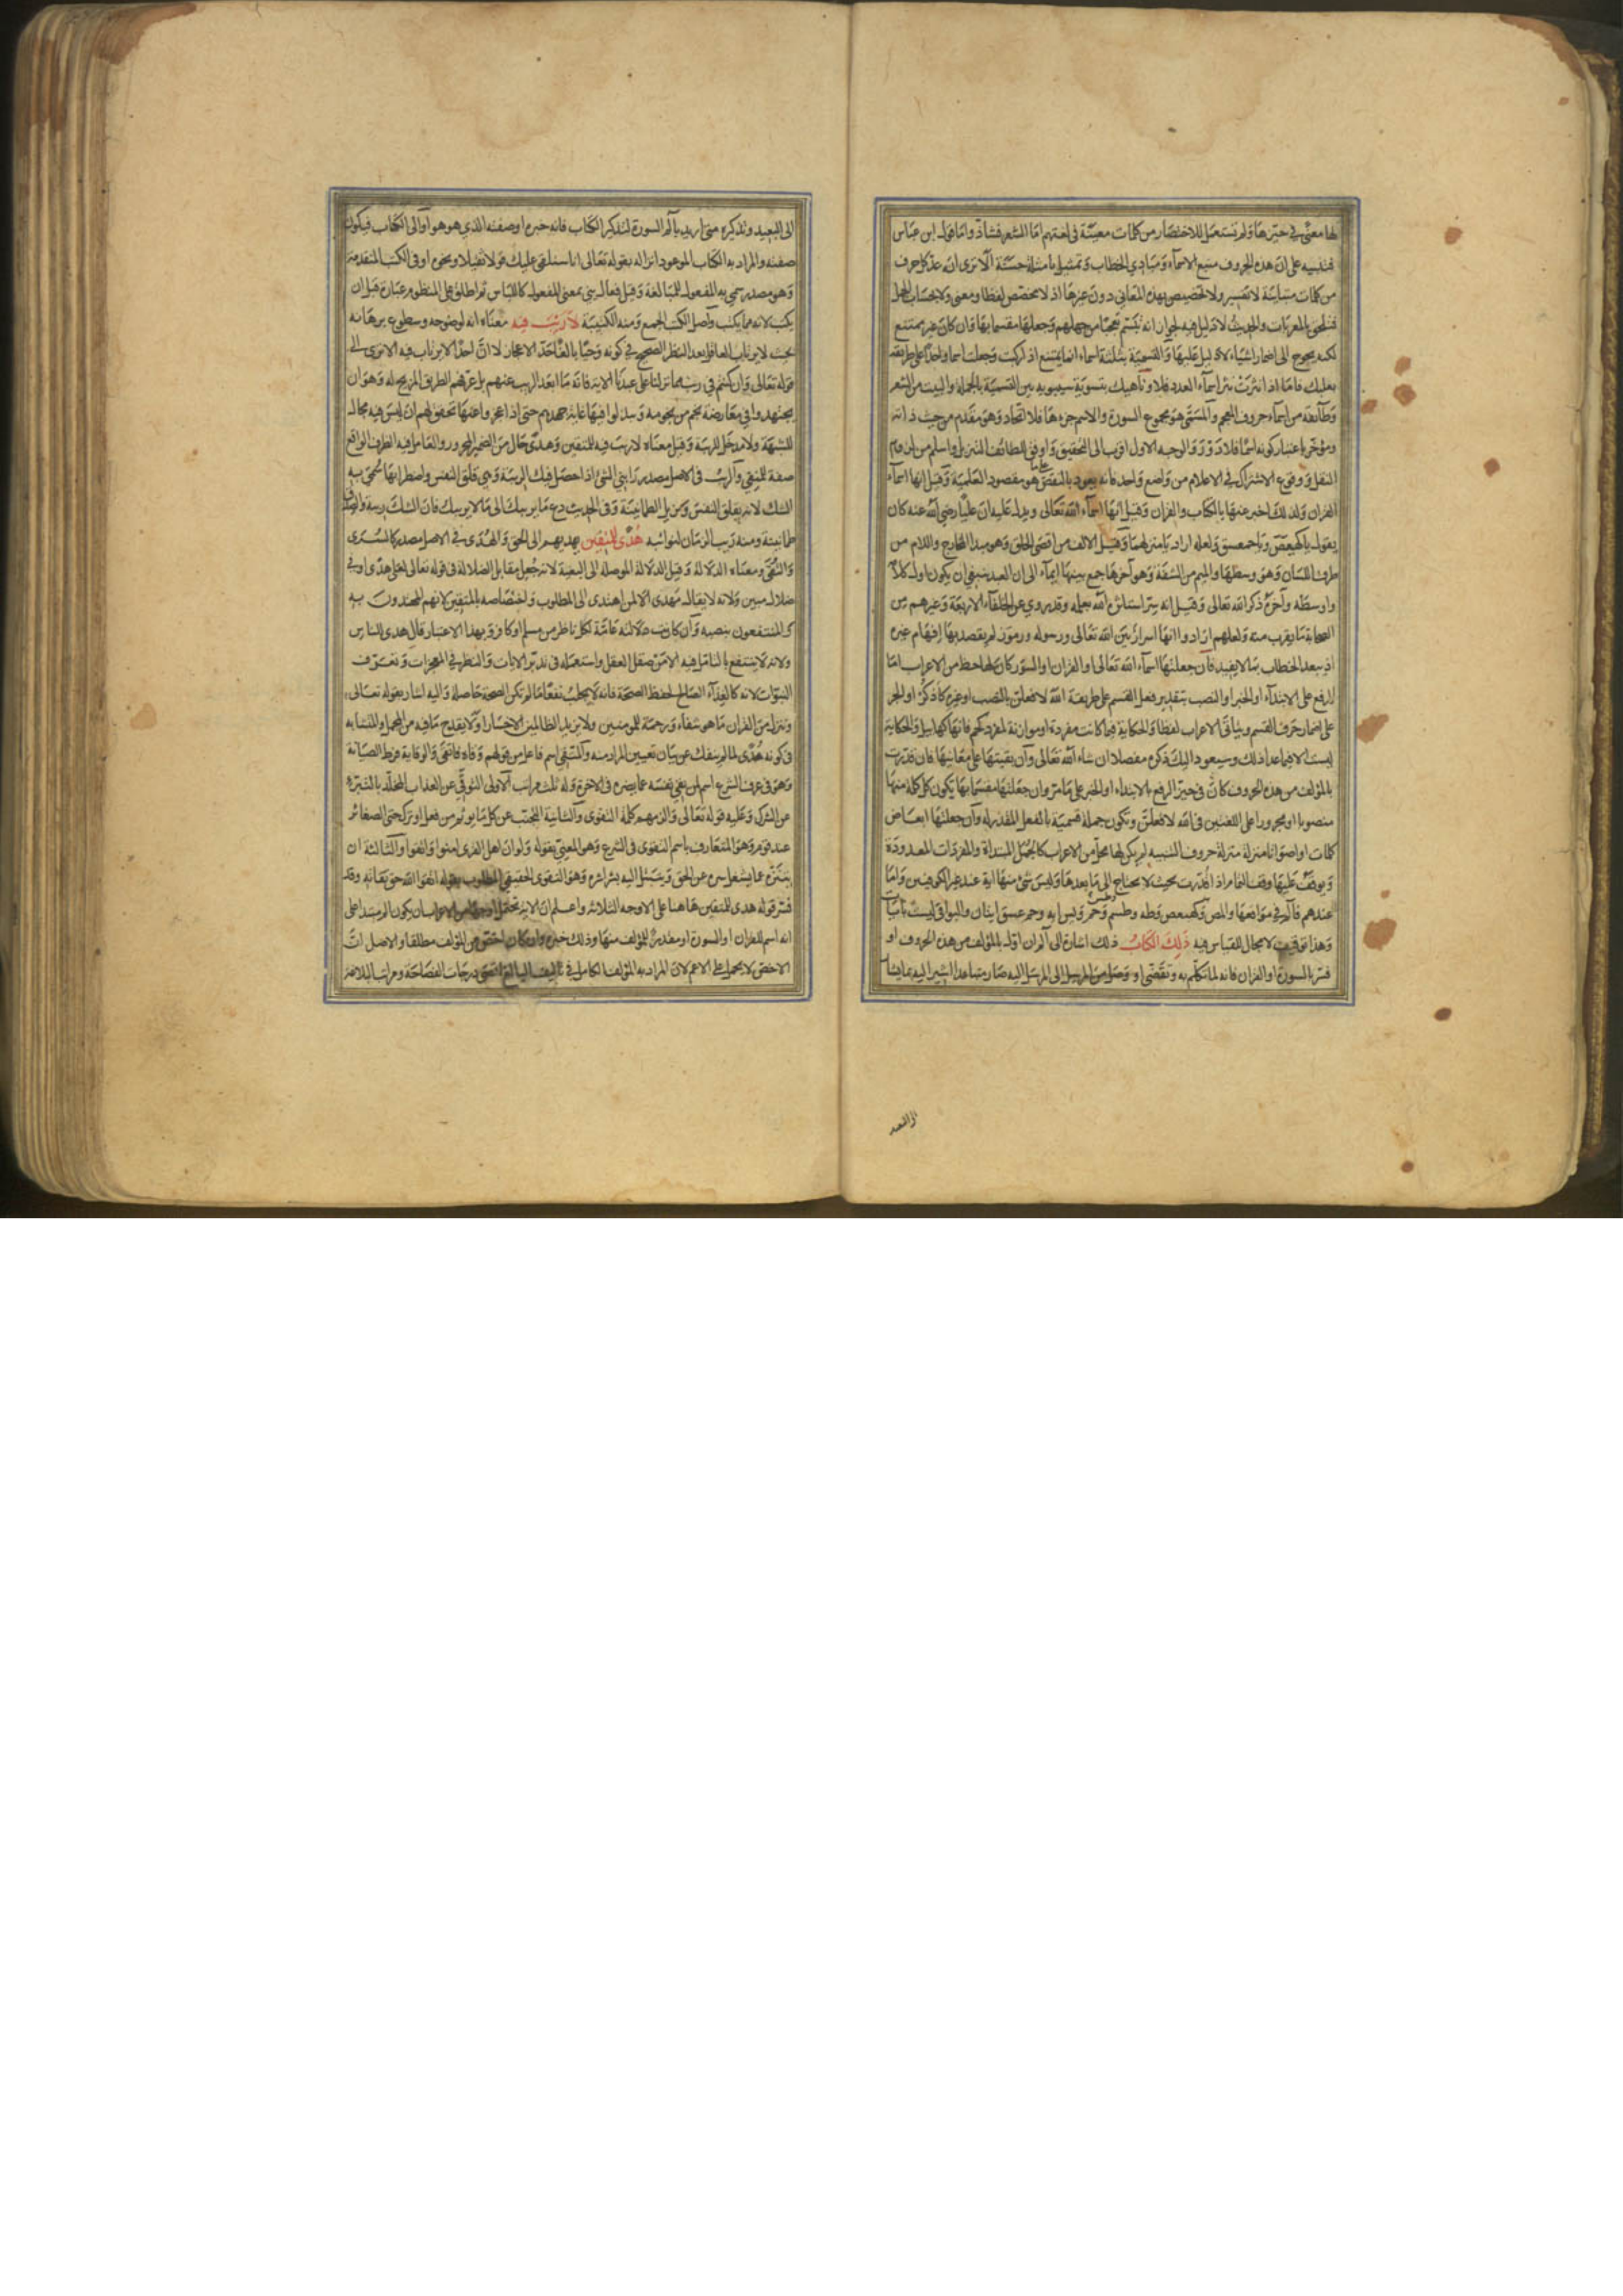 لها معنى في حيزها ولم تستعمل للاختصار من كلمات معينة في لغتهم اما الشعر فشاذ واما قول ابن عباس
فتنبيه على ان هذه الحروف منبع الاسماء ومبادي الخطاب وتمثيل بامثلة حسنة الا ترى انه عد كل حرف
من كلمات متباينة لا تفسير ولا تخصيص بهذه المعاني دون غيرها اذ لا مخصص لفظا ومعنى ولا بحساب الجمل
فتلحق بالمعربات والحديث لا دليل فيه لجواز انه تبسم تعجبا من جهلهم وجعلها مقسما بها وان كان غير ممتنع
لكنه يحوج الى اضمار اشياء لا دليل عليها والتسمية بثلثة اسماء انما يمتنع اذ اركبت وجعلت اسما واحدا على طريقة
بعلبك فاما اذا نثرت نثر اسماء العدد فلا وناهيك بتسوية سيبويه بين التسمية بالجملة والبيت من الشعر
وطائفة من اسماء حروف المعجم والمسمى هو مجموع السورة والاسم جزءها فلا اتحاد وهو مقدم من حيث ذاته
ومؤخر باعتبار كونه اسما فلا دور والوجه الاول اقرب الى التحقيق واوفق للطائف التنزيل واسلم من لزوم
النقل ووقوع الاشتراك في الاعلام من واضع واحد فانه يعود بالنقض على ما هو مقصود العلمية وقيل انها اسماء
القران ولذلك اخبر عنها بالكتاب والقران وقيل انها اسماء الله تعالى ويدل عليه ان عليا رضي الله عنه كان
يقول يا كهيعص ويا حمعسق ولعله اراد يا منزلهما وقيل الالف من اقصى الحلق وهو مبدا المخارج واللام من
طرف اللسان وهو وسطها والميم من الشفة وهو آخرها جمع بينها ايماء الى ان العبد ينبغي ان يكون اول كلامه
واوسطه وآخره ذكر الله تعالى وقيل انه سر استاثره الله بعلمه وقد روي عن الخلفاء الاربعة وغيرهم من
الصحابة ما يقرب منه ولعلهم ارادوا انها اسرار بين الله تعالى ورسوله ورموز لم يقصد بها افهام غيره
اذ يبعد الخطاب بما لا يفيد فان جعلتها اسماء الله تعالى او القران او السور كان لها حظ من الاعراب اما
الرفع على الابتداء او الخبر او النصب بتقدير فعل القسم على طريقة الله لافعلن بالنصب او غيره كاذكر او الجر
على اضمار حرف القسم ويتاتى الاعراب لفظا والحكاية فيما كانت مفردة او موازنة لمفرد كحم فانها كهابيل والحكاية
ليست الا فيما عدا ذلك وسيعود اليك ذكره مفصلا ان شاء الله تعالى وان بقيتها على معانيها فان قدرت
بالمؤلف من هذه الحروف كان في حيز الرفع بالابتداء او الخبر على ما مر وان جعلتها مقسما بها يكون كل كلمة منها
منصوبا او مجرورا على اللغتين في الله لافعلن وتكون جملة قسمية بالفعل المقدر له وان جعلتها ابعاض
كلمات او اصواتا منزلة منزلة حروف التنبيه لم يكن لها محل من الاعراب كالجمل المبتداة والمفردات المعدودة
ويوقف عليها وقف التمام اذا قدرت بحيث لا يحتاج الى ما بعدها وليس شئ منها اية عند غير الكوفيين واما
عندهم فالم في مواقعها والمص وكهيعص وطه وطسم وطس وحم ويس اية وحم عسق ايتان والبواقي ليست بايات
وهذا توقيف لا مجال للقياس فيه ذلك الكتاب ذلك اشارة الى الم ان اول بالمؤلف من هذه الحروف او
فسر بالسورة او القران فانه لما تكلم به وتقضى او وصل من المرسل الى المرسل اليه صار متباعدا اشير اليه بما يشار
الى البعيد وتذكيره متى اريد بالم السورة لتذكير الكتاب فانه خبره او صفته الذي هو هو او الى الكتاب فيكون
صفته والمراد به الكتاب الموعود انزاله بقوله تعالى انا سنلقي عليك قولا ثقيلا ونحوه او في الكتب المتقدمة
وهو مصدر سمي به المفعول للمبالغة وقيل فعال بني بمعنى المفعول كاللباس ثم اطلق على المنظوم عبارة قبل ان
يكتب لانه مما يكتب واصل الكتب الجمع ومنه الكتيبة لا ريب فيه معناه انه لوضوحه وسطوع برهانه
بحيث لا يرتاب العاقل بعد النظر الصحيح في كونه وحيا بالغا حد الاعجاز لا ان احدا لا يرتاب فيه الا ترى الى
قوله تعالى وان كنتم في ريب مما نزلنا على عبدنا الاية فانه ما ابعد الريب عنهم بل عرفهم الطريق المزيح له وهو ان
يجتهدوا في معارضة نجم من نجومه ويبذلوا فيها غاية جهدهم حتى اذا عجزوا عنها تحقق لهم ان ليس فيه مجال
للشبهة ولا مدخل للريبة وقيل معناه لا ريب فيه للمتقين وهدى حال من الضمير المجرور والعامل فيه الظرف الواقع
صفة للمنفي والريب في الاصل مصدر رابني الشئ اذا حصل فيك الريبة وهي قلق النفس واضطرابها سمي به
الشك لانه يقلق النفس ويزيل الطمانينة وفي الحديث دع ما يريبك الى ما لا يريبك فان الشك ريبة والصدق
طمانينة ومنه ريب الزمان لنوائبه هدى للمتقين يهديهم الى الحق والهدى في الاصل مصدر كالسرى
والتقى ومعناه الدلالة وقيل الدلالة الموصلة الى البغية لانه جعل مقابل الضلالة في قوله تعالى لعلى هدى او في
ضلال مبين ولانه لا يقال مهدي الا لمن اهتدى الى المطلوب واختصاصه بالمتقين لانهم المهتدون به
والمنتفعون بنصبه وان كانت دلالته عامة لكل ناظر من مسلم او كافر وبهذا الاعتبار قال هدى للناس
ولانه لا ينتفع بالتامل فيه الا من صقل العقل واستعمله في تدبر الايات والنظر في المعجزات وتعرف
النبوات لانه كالغذاء الصالح لحفظ الصحة فانه لا يجلب نفعا ما لم تكن الصحة حاصلة واليه اشار بقوله تعالى
وننزل من القران ما هو شفاء ورحمة للمومنين ولا يزيد الظالمين الا خسارا ولا يقدح ما فيه من المجمل والمتشابه
في كونه هدى لما لم ينفك عن بيان تعيين المراد منه والمتقي اسم فاعل من قولهم وقاه فاتقى والوقاية فرط الصيانة
وهو في عرف الشرع اسم لمن يقي نفسه عما يضره في الاخرة وله ثلث مراتب الاولى التوقي عن العذاب المخلد بالتبري
عن الشرك وعليه قوله تعالى والزمهم كلمة التقوى والثانية التجنب عن كل ما يؤثم من فعل او ترك حتى الصغائر
عند قوم وهو المتعارف باسم التقوى في الشرع وهو المعني بقوله ولو ان اهل القرى امنوا واتقوا والثالثة ان
يتنزه عما يشغل سره عن الحق ويتبتل اليه بشراشره وهو التقوى الحقيقي المطلوب بقوله اتقوا الله حق تقاته وقد
فسر قوله هدى للمتقين هاهنا على الاوجه الثلاثة واعلم ان الاية تحتمل اوجها من الاعراب ان يكون الم مبتدا على
انه اسم للقران او السورة او مقدر بالمؤلف منها وذلك خبره وان كان اخص من المؤلف مطلقا والاصل ان
الاخص لا يحمل على الاعم لان المراد به المؤلف الكامل في تاليفه البالغ اقصى درجات الفصاحة ومراتب البلاغة
الى البعيد